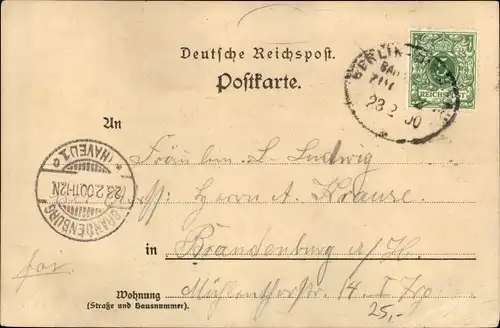 Deutsche Reichspost.
Postkarte.
BERLIN
BAH
23 2 00
REICHSPOST
An
Fräulein L. Ludwig
Herrn A. Krause
BRANDENBURG (HAVEL) 1
23.2.00.11-12N.
in Brandenburg a/H.
Wohnung
(Straße und Hausnummer).
14 I Trp
25,-